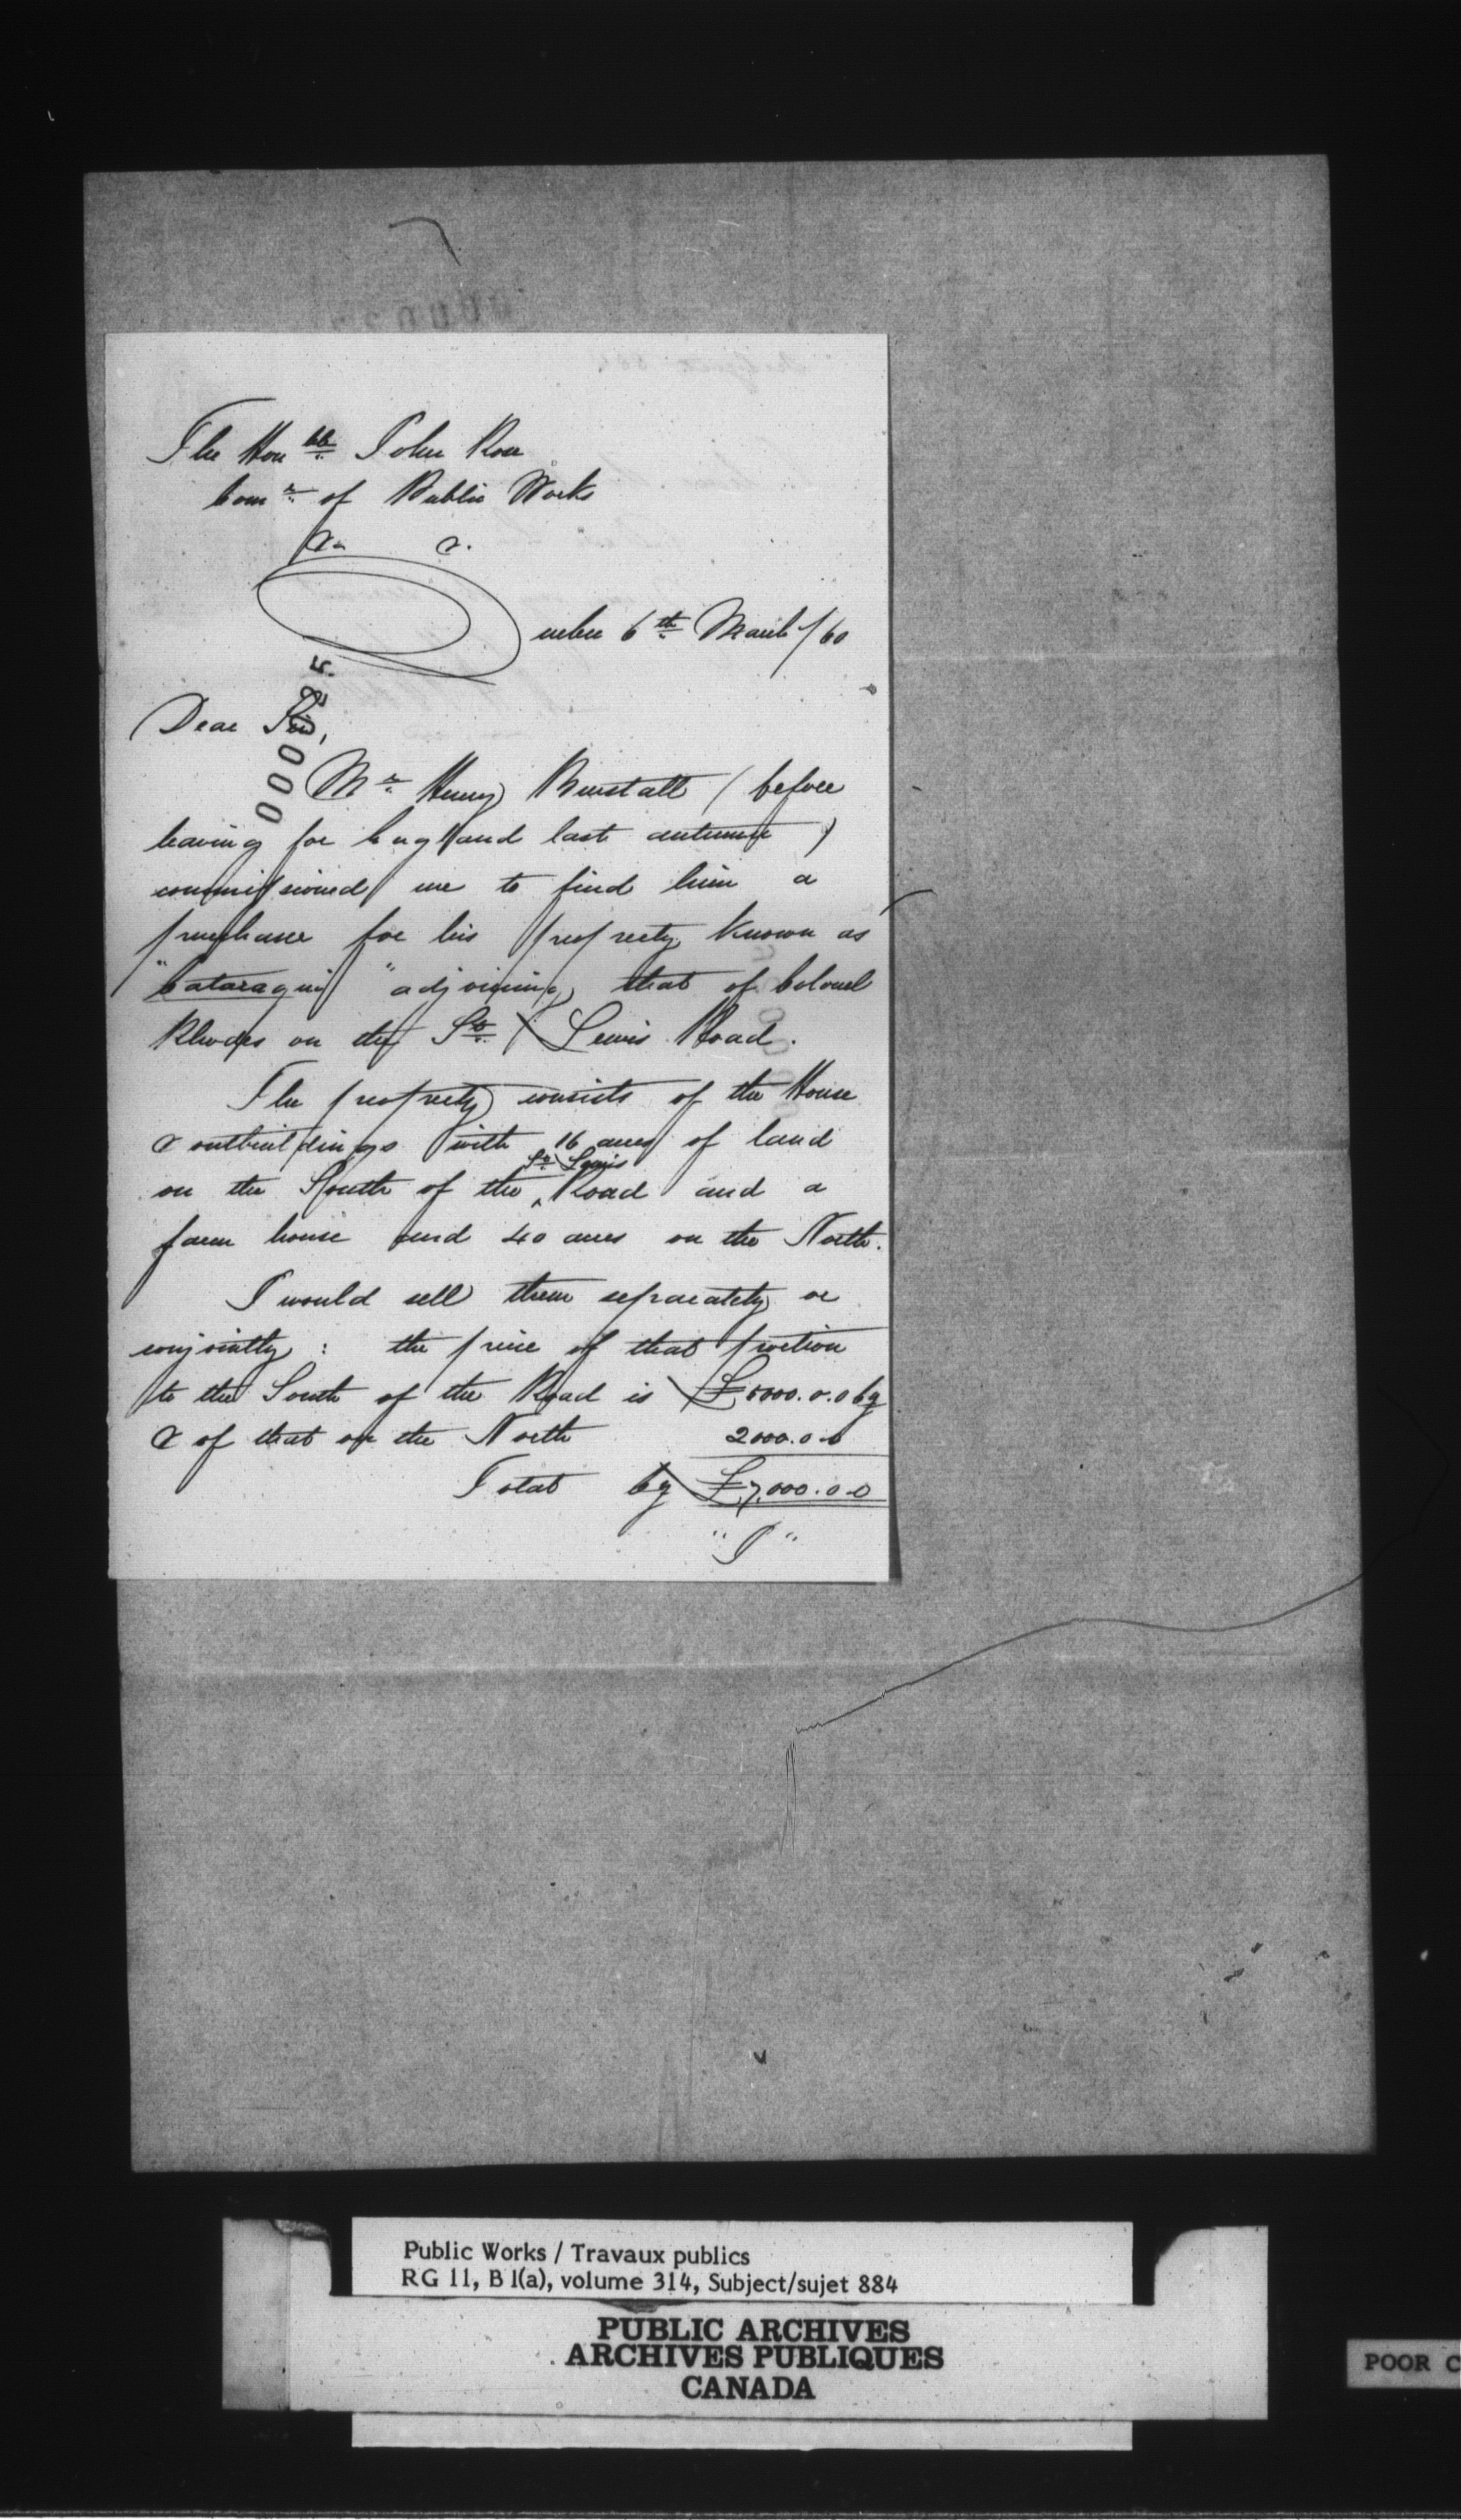 The Hon ble John Rose
Comr of Public Works
&c &c.
Quebec 6th March /60
Dear Sir,
Mr Henry Burstall (before
leaving for England last autumn)
commissioned me to find him a
purchaser for his property known as
"Cataraqui" adjoining that of Colonel
Rhodes on the St Lewis Road.
The property consists of the House
& outbuildings with 16 acres of land
on the South of the St Lewis Road and a
farm house and 40 acres on the North.
I would sell them separately or
conjointly: the price of that portion
to the South of the Road is £5000.0.0 Cy
& of that on the North 2000.0.0
Total Cy £7,000.0.0
"I"
Public Works / Travaux publics
RG 11, B 1(a), volume 314, Subject/sujet 884
PUBLIC ARCHIVES
ARCHIVES PUBLIQUES
CANADA
POOR C